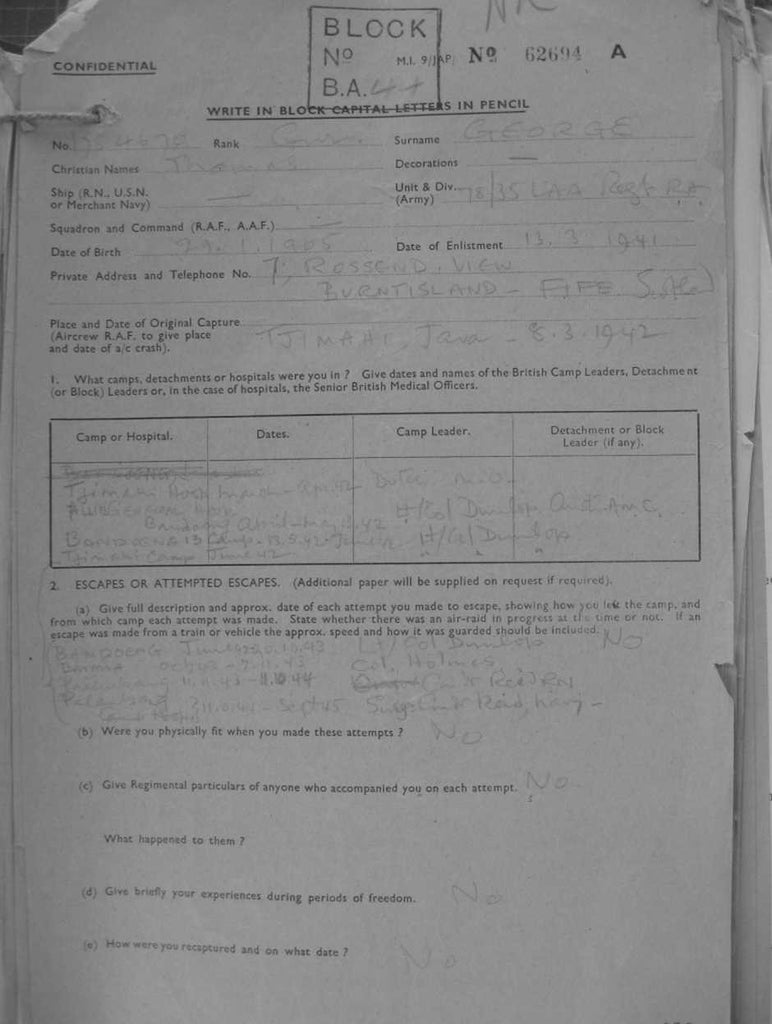 BLOCK
Nº
B.A. 44
CONFIDENTIAL
M.I. 9/JAP. Nº 62694 A
WRITE IN BLOCK CAPITAL LETTERS IN PENCIL
No. Rank Gnr. Surname GEORGE
Christian Names Thomas Decorations —
Ship (R.N., U.S.N. or Merchant Navy) —
Unit & Div. (Army) 78/35 LAA Regt RA
Squadron and Command (R.A.F., A.A.F.) —
Date of Birth 29.1.1905 Date of Enlistment 13.3.1941
Private Address and Telephone No. 7, ROSSEND. VIEW
BURNTISLAND - FIFE
Place and Date of Original Capture
(Aircrew R.A.F. to give place and date of a/c crash).
TJIMAHI, Java - 8.3.1942
1. What camps, detachments or hospitals were you in ? Give dates and names of the British Camp Leaders, Detachment
(or Block) Leaders or, in the case of hospitals, the Senior British Medical Officers.
Camp or Hospital. Dates. Camp Leader. Detachment or Block Leader (if any).
Tjimahi Hosp March - Apr. 42 Dutch M.O.
Bandoeng April - May 42 Lt/Col Dunlop
BANDOENG Camp. Lt/Col Dunlop
Tjimahi Camp June 42 " " "
2. ESCAPES OR ATTEMPTED ESCAPES. (Additional paper will be supplied on request if required).
(a) Give full description and approx. date of each attempt you made to escape, showing how you left the camp, and
from which camp each attempt was made. State whether there was an air-raid in progress at the time or not. If an
escape was made from a train or vehicle the approx. speed and how it was guarded should be included. No
BANDOENG June Lt/Col Dunlop
Oct 43 - 7.11.43 Col. Holmes
Palembang 11.11.43 -
Palembang - Sept 45
(b) Were you physically fit when you made these attempts ? No
(c) Give Regimental particulars of anyone who accompanied you on each attempt. No
What happened to them ?
(d) Give briefly your experiences during periods of freedom. No
(e) How were you recaptured and on what date ? No